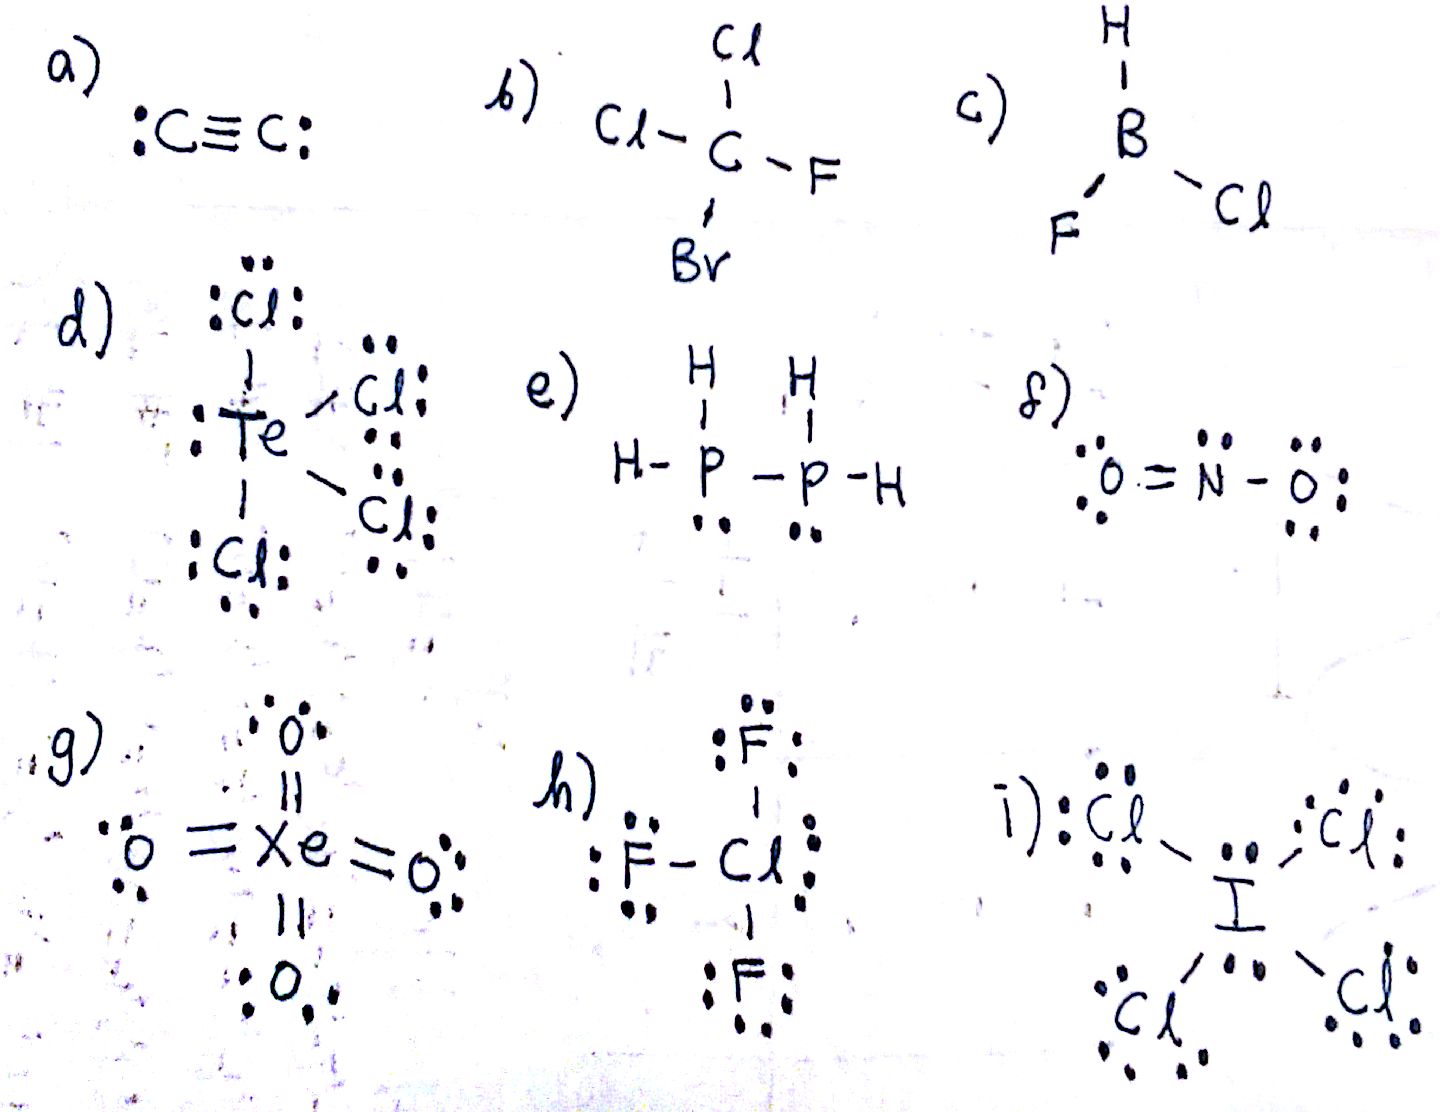 a) :C≡C:
b) Cl Cl-C-F Br
c) H B F Cl
d) :Cl: :Te Cl: Cl: :Cl:
e) H H H-P-P-H
f) O=N-O:
g) O O=Xe=O :O
h) :F: :F-Cl: :F:
i) :Cl Cl: I Cl Cl